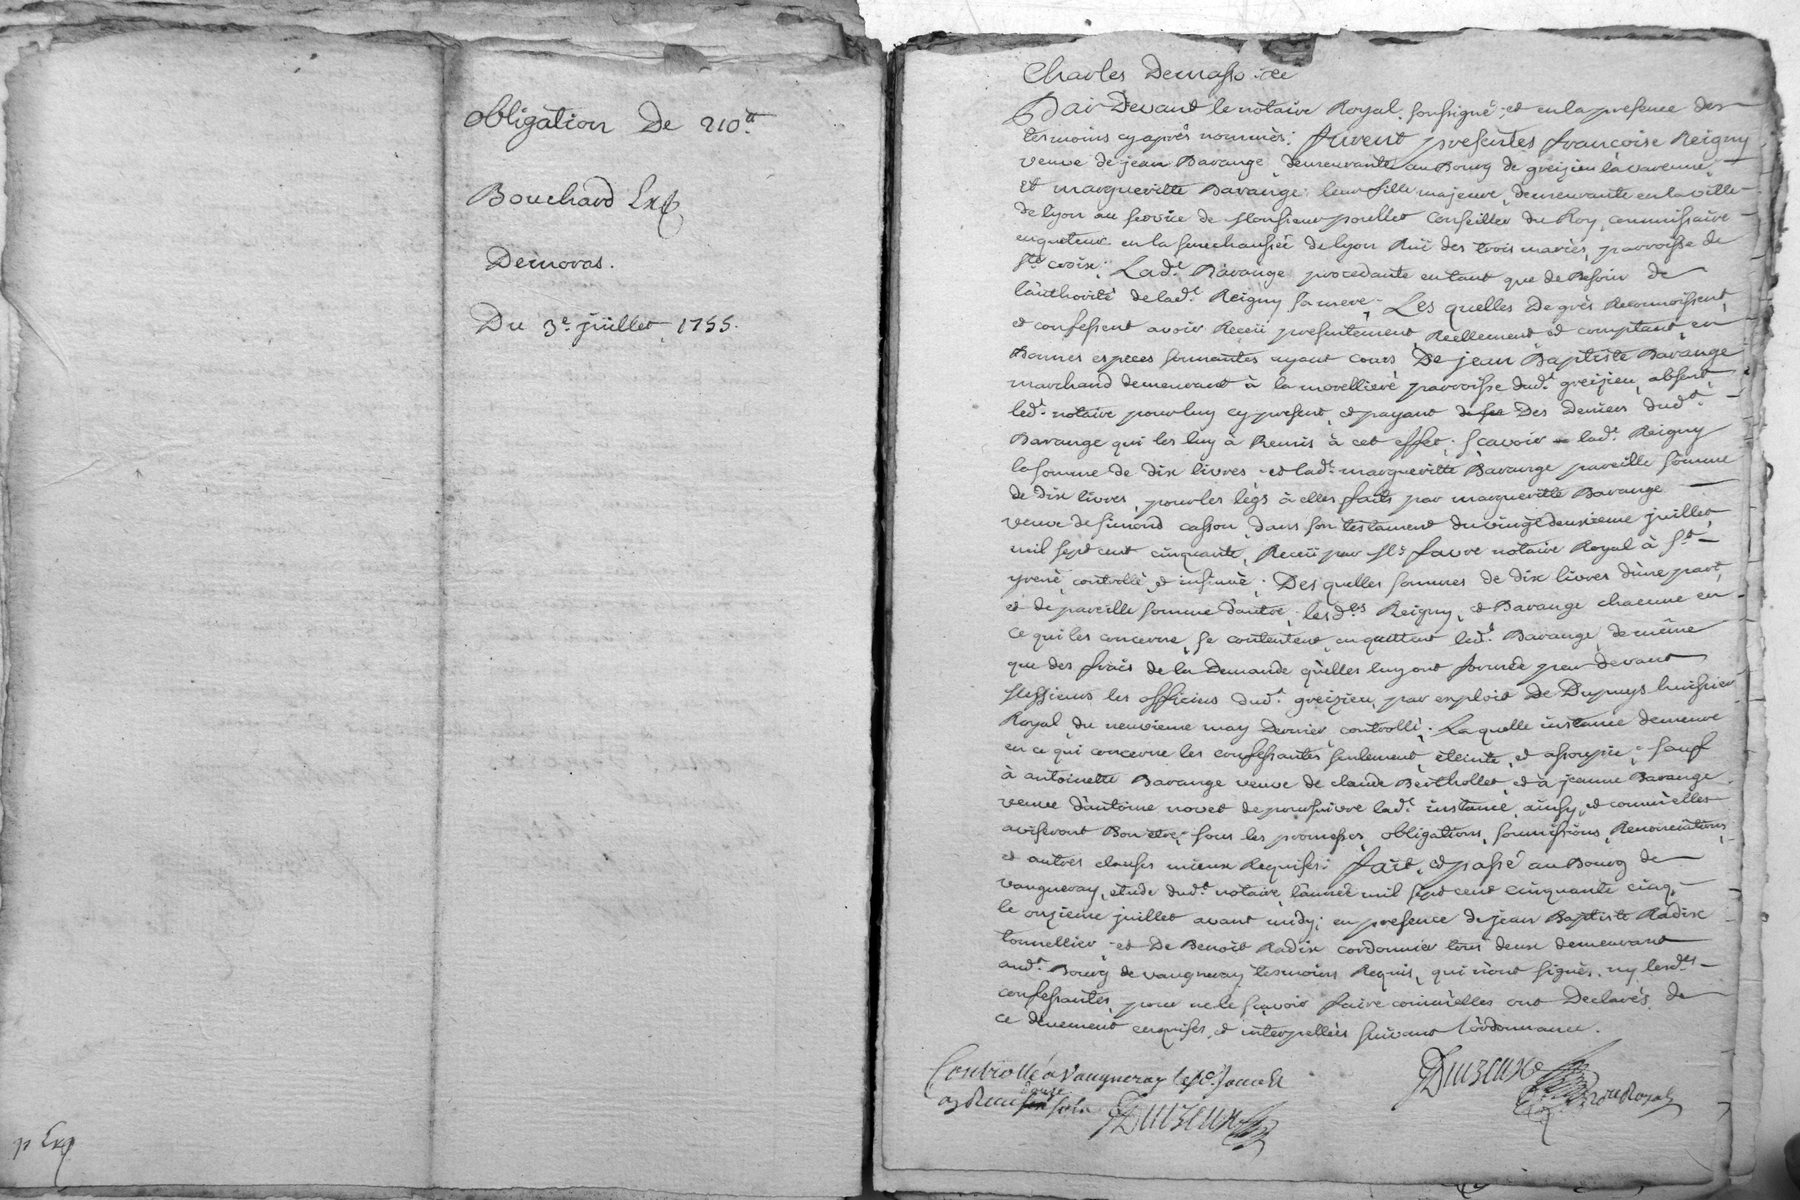 obligation De 210.tt
Bouchard Exp.
Demoras.
Du 3.e juillet 1755.
p Exp
Charles Demasso &c
Pardevant le notaire Royal soussigné, et en la presence des
tesmoins cy aprés nommés: furent presentes françoise Reigny
veuve de jean Barange, demeurante au Bourg de greizieu la varenne,
Et margueritte Barange leur fille majeure, demeurante en la ville
de lyon au service de Monsieur poullet Conseiller du Roy, commissaire
enqueteur en la senechaussée de lyon Ruë des trois maries, parroisse de
Ste croix; Lad.e Barange procedante en tant que de Besoin de
l'authorité de lad.e Reigny sa mere, Les quelles De grès Reconnoissent,
et confessent avoir Receü presentement, Reéllement, et comptant, en
Bonnes especes sonnantes ayant cours De jean Baptiste Barange
marchand demeurant à la morelliere parroisse dud.t greizieu, absent,
led.t notaire pour luy cy present, et payant Des Deniers dud.t
Barange qui les luy à Remis à cet effet; sçavoir lad.e Reigny
la somme de dix livres et lad.e margueritte Barange pareille somme
de dix livres, pour les légs à elles faits par margueritte Barange
veuve de simond casson, dans son testament du vingt deuxieme juillet
mil sept cent cinquante, Receü par M.e favre notaire Royal à S.t
yrené, controllé, et insinué; Des quelles sommes de dix livres d'une part,
et de pareille somme d'autre, lesd.es Reigny, et Barange chacune en
ce qui les concerne, se contentent, en quittent led.t Barange, de même
que des frais de la Demande qu'elles luy ont formée par devant
Messieurs les officiers dud.t greizieu, par exploit De Dupuys huissier
Royal, du neuvieme may Dernier controllé; La quelle instance demeure
en ce qui concerne les confessantes seulement, éteinte, et assoupie; sauf
à antoinette Barange veuve de claude Berthollet, et à jeanne Barange
veuve d'antoine novet de poursuivre lad.e instance, ainsy, et comm'elles
aviseront Bon etre; sous les promesses, obligations, soumissions, Renonciations,
et autres clauses mieux Requises; fait, et passé au Bourg de
vaugneray, étude dud.t notaire, l'année mil sept cent cinquante cinq,
le onzieme juillet avant midy; en presence de jean Baptiste Radix
tonnellier, et De Benoit Radix cordonnier tous deux demeurant
aud.t Bourg de vaugneray tesmoins Requis, qui n'ont signés, ny lesd.es
confessantes, pour ne le sçavoir faire comm'elles ont Declarés de
ce düement enquises, et interpellées suivant l'ordonnance.
Controllé a Vaugneray le
Reçu douze sols
Duzeux
Duzeux
n.re Royal